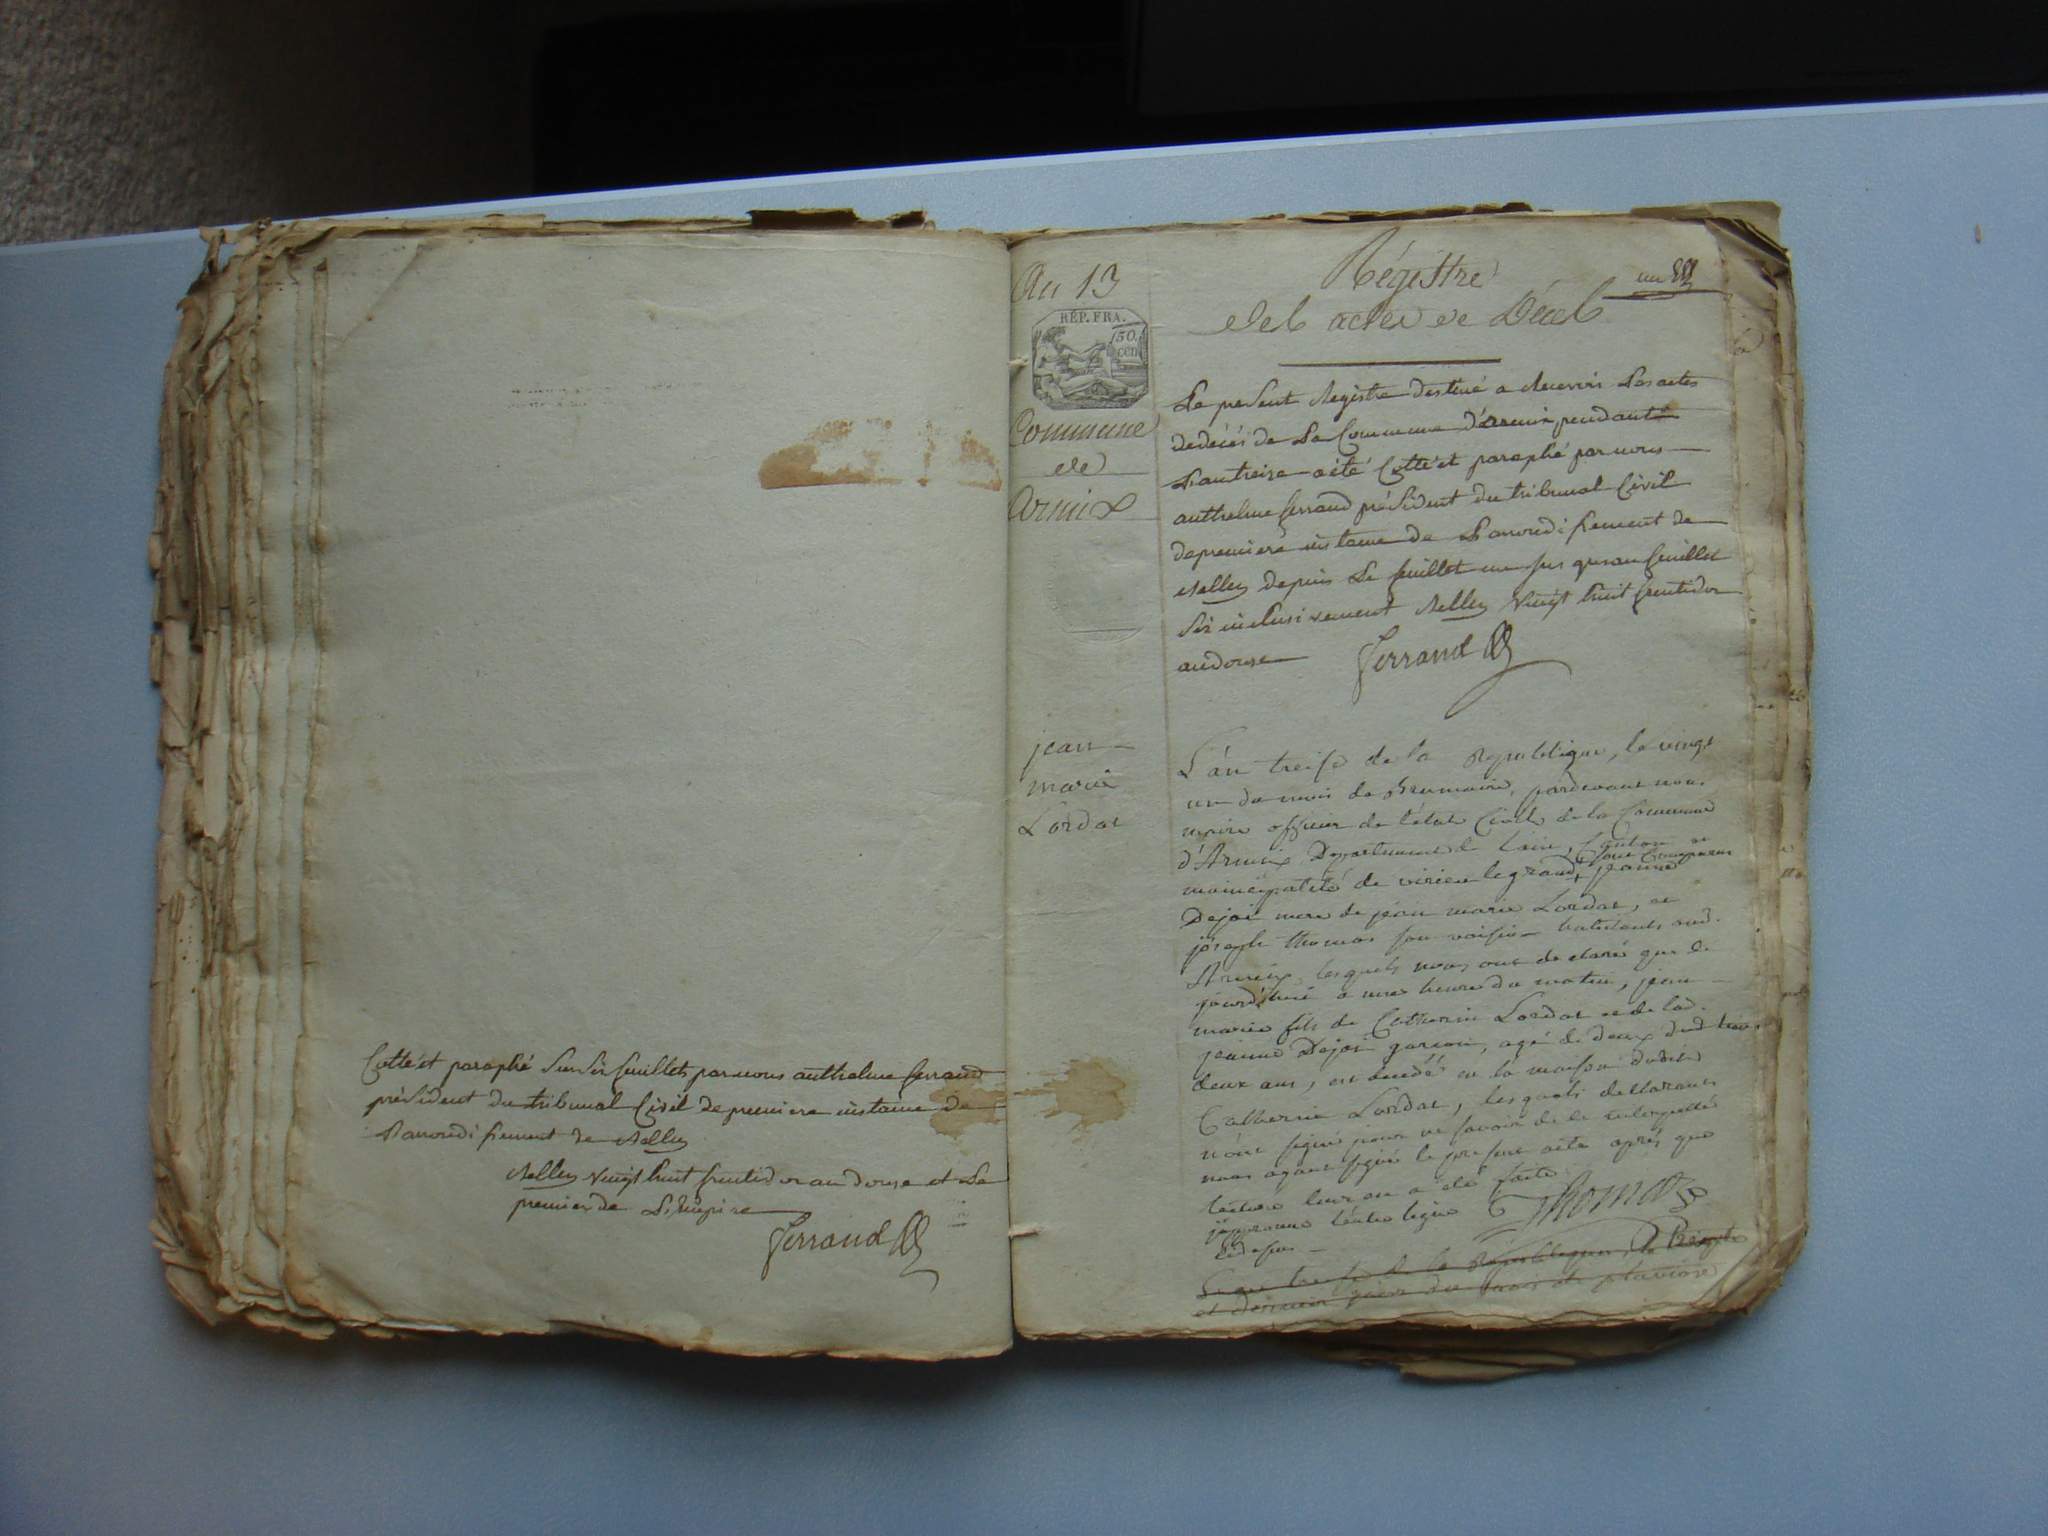 Cotté et paraphé sur six feuillets par nous anthelme ferrand
président du tribunal Civil de premiere instance de
L'arrondissement de Belley
Belley vingt huit fructidor an douze et Le
premier de L'Empire
ferrand
An 13
RÉP. FRA.
50.
CEN
Commune
de
Armix
jean
marie
Lordat
un
Régistre
des actes de Décès
Le present Registre destiné a Recevoir Les actes
de décès de La Commune d'armix pendant
L'an treize a été Cotté et paraphé par nous
anthelme ferrand président du tribunal Civil
de premiere instance de L'arrondissement de
Belley depuis Le feuillet un jusqu'au feuillet
six inclusivement Belley vingt huit fructidor
an douze ferrand
L'an treise de la Republique, le vingt
un du mois de Brumaire, pardevant nous
maire officier de l'état Civil de la Commune
d'Armix Departement de Lain, Canton et
municipalité de virieu le grand, sont Comparus jeanne
Dejoi mere de jean marie Lordat, et
joseph thomas son voisin habitants aud.
Armix, lesquels nous ont declaré que le
jourd'hui a une heure du matin, jean
marie fils de Catherin Lordat et de lad.
jeanne Dejoi garcon, agé de deux
deux ans, est decedé en la maison dudit
Catherin Lordat, lesquels declarants
n'ont signé pour ne savoir de ce interpellés
nous ayant signé le present acte après que
lecture leur en a été faite
japprouve lentre ligne
cidessus
Thomas
L'an treise de la Republique, le Vingt
et dernier jour du mois de pluviose